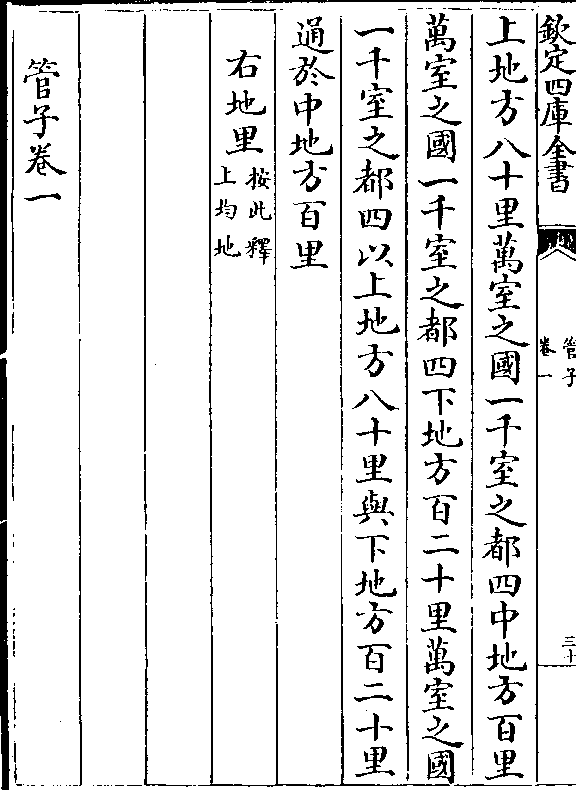 欽定四庫全書
管子
卷一
三十
上地方八十里萬室之國一千室之都四中地方百里
萬室之國一千室之都四下地方百二十里萬室之國
一千室之都四以上地方八十里與下地方百二十里
通於中地方百里
右地里
按此釋
上均地
管子卷一